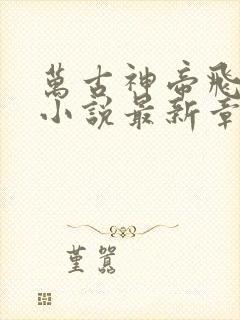 萬古神帝飛
小說最新章
堇囂